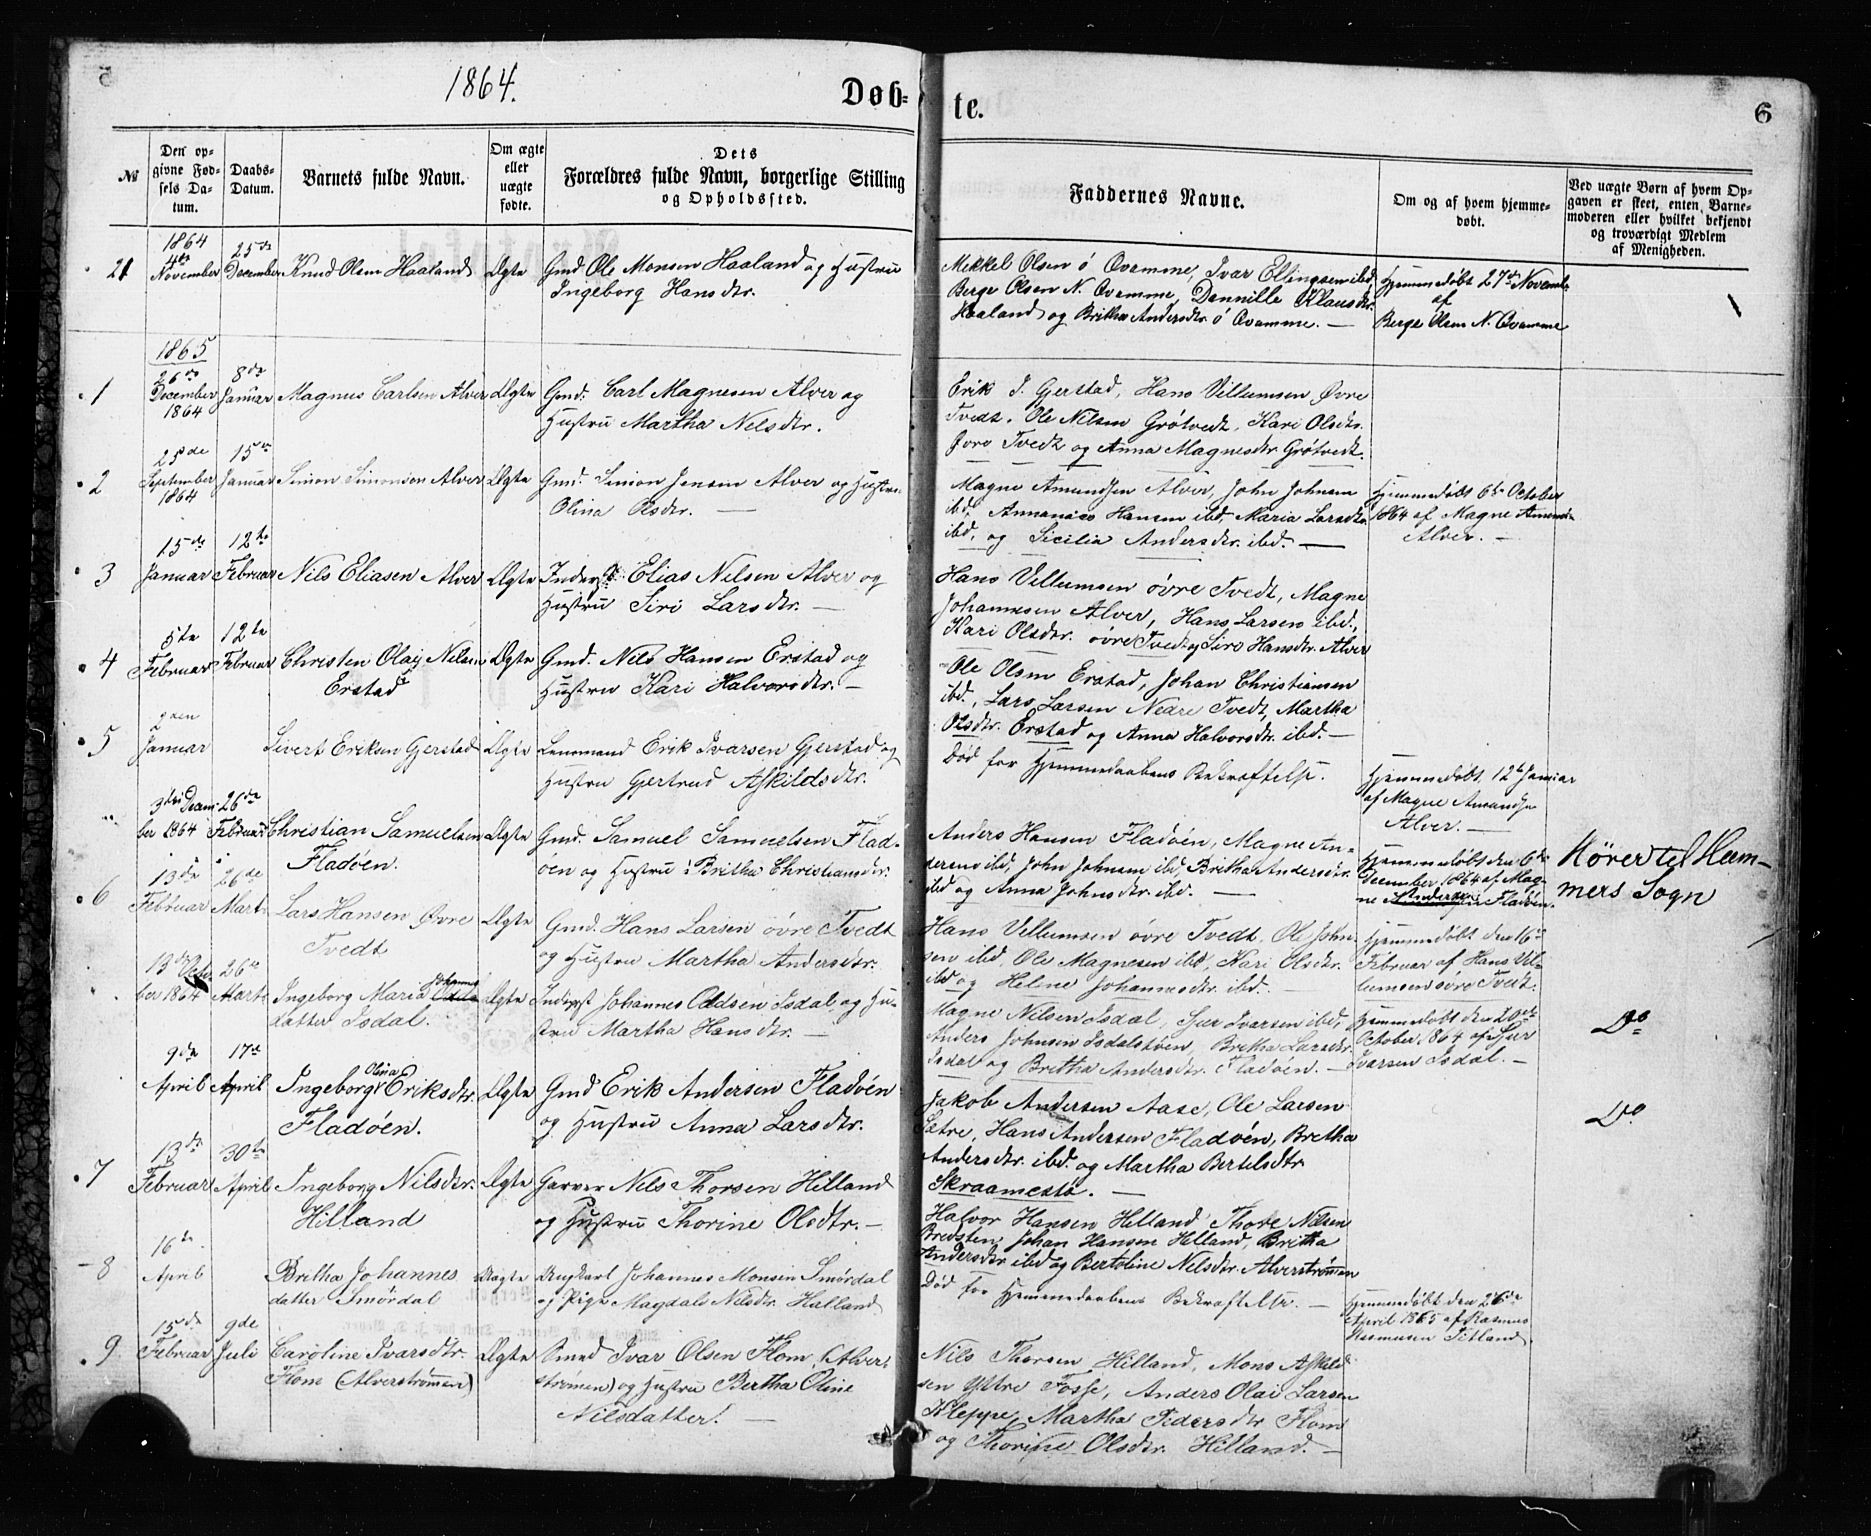 5
1864.
Døb-
te.
6
№
Den op-
givne Fød-
sels Da-
tum.
Daabs-
Datum.
Barnets fulde Navn.
Om ægte
eller
uægte
fødte.
Dets
Forældres fulde Navn, borgerlige Stilling
og Opholdssted.
Faddernes Navne.
Om og af hvem hjemme-
døbt.
Ved uægte Børn af hvem Op-
gaven er skeet, enten Barne-
moderen eller hvilket bekjendt
og troværdigt Medlem
af Menigheden.
21
1864
4de
November
25de
December
Knud Olsen Haaland
Ægte
Gmd Ole Monsen Haaland og Hustru
Ingeborg Hansdtr.
Mekkel Olsen ø Qvamme, Ivar Ellingsen ibd.
Berge Olsen N. Qvamme, Dannille Klausdtr.
Haaland og Britha Andersdtr. ø Qvamme. —
Hjemmedøbt 27de Novemb.
af
Berge Olsen N. Qvamme
1865
1
26de
December
1864
8de
Januar
Magnus Carlsen Alver
Ægte
Gmd. Carl Magnesen Alver og
Hustru Martha Nelsdtr.
Erik I. Gjerstad, Hans Villumsen Øvre
Tvedt, Ole Nilsen Grøtvedt, Kari Olsdtr.
Øvre Tvedt og Anna Magnesdtr Grøtvedt.
2
25de
September
1864
15de
Januar
Simon Simonsen Alver
Ægte
Gmd. Simon Jensen Alver og Hustru
Olina Olsdtr. —
Magne Amundsen Alver, John Johnsen
ibd, Annanias Hansen ibd, Maria Larsdtr.
ibd, og Sicilia Andersdtr. ibd. —
Hjemmedøbt 6te October
1864 af Magne Amunds.
Alver. —
3
15de
Januar
12te
Februar
Nils Eliasen Alver
Ægte
Inders. Elias Nilsen Alver og
Hustru Siri Larsdtr. —
Hans Villumsen øvre Tvedt, Magne
Johannesen Alver, Hans Larsen ibd.,
Kari Olsdtr. øvre Tvedt og Siri Hansdtr. Alver
4
5te
Februar
12te
Februar
Christen Olai Nilsen
Erstad
Ægte
Gmd. Nils Hansen Erstad og
Hustru Kari Halvorsdtr. —
Ole Olsen Erstad, Johan Christiansen
ibd., Lars Larsen Nedre Tvedt, Martha
Olsdtr. Erstad og Anna Halvorsdtr. ibd. —
5
2den
Januar
Sivert Eriksen Gjerstad
Ægte
Lensmand Erik Ivarsen Gjerstad og
Hustru Gjertrud Askildsdtr.
Død før Hjemmedaabens Bekræftelse.
Hjemmedøbt 12te Januar
af Magne Amundsen
Alver. —
3die Decem-
ber 1864
26de
Februar
Christian Samuelsen
Fladøen.
Ægte
Gmd. Samuel Samuelsen Flad-
øen og Hustru Britha Christiansdtr.
Anders Hansen Fladøen, Magne An-
dersen ibd, John Johnsen ibd, Britha Andersdtr.
ibd og Anna Johnsdtr ibd. —
Hjemmedøbt den 6te
December 1864 af Mag-
ne Andersen Fladøen.
Hører til Ham-
mers Sogn
6
13de
Februar
26de
Marts
Lars Hansen Øvre
Tvedt
Ægte
Gmd. Hans Larsen øvre Tvedt
og Hustru Martha Andersdtr.
Hans Villumsen øvre Tvedt, Ole John-
sen ibd, Ole Magnesen ibd, Kari Olsdtr.
ibd og Helene Johannesdtr. ibd. —
Hjemmedøbt den 16de
Februar af Hans Vil-
lumsen øvre Tvedt.
13de Octo-
ber 1864
26de
Marts
Ingeborg Maria Johannes
datter Isdal.
Ægte
Inderst Johannes Oddsen Isdal, og Hu-
stru Martha Hansdtr. —
Magne Nilsen Isdal, Sjur Ivarsen ibd,
Anders Johnsen Isdalstøen, Bretha Larsdtr.
Isdal og Britha Andersdtr. Fladøen. —
Hjemmedøbt den 20de
October 1864 af Sjur
Ivarsen Isdal. —
Do
9de
April
17de
April
Olina
Ingeborg Eriksdtr.
Fladøen.
Ægte
Gmd Erik Andersen Fladøen
og Hustru Anna Larsdtr.
Jakob Andersen Aase, Ole Larsen
Sætre, Hans Andersen Fladøen, Bretha
Andersdtr. ibd. og Martha Bertelsdtr
Skraamestø. —
Do
7
13de
Februar
30te
April
Ingeborg Nilsdtr.
Hilland
Ægte
Garver Nils Thorsen Hilland
og Hustru Thorine Olsdtr. —
Halvor Hansen Hilland, Thore Nilsen
Bredsten, Johan Hansen Helland, Britha
Andersdtr ibd og Bertoline Nelsdtr. Alverstrømmen
8
16de
April
Britha Johannes
datter Smørdal
Uægte
Ungkarl Johannes Monsen Smørdal
og Pige Magdale Nilsdtr. Halland
Død før Hjemmedaabens Bekræftelse. —
Hjemmedøbt den 26de
April 1865 af Rasmus
Rasmusen Titland
9
15de
Februar
9de
Juli
Caroline Ivarsdtr.
Flom (Alverstrømmen)
Ægte
Smed Ivar Olsen Flom (Alver-
strømen) og Hustru Bertha Oline
Nilsdatter. —
Nils Thorsen Hilland, Mons Askild-
sen Yttre Fosse, Anders Olai Larsen
Kleppe, Martha Pedersdtr Flom
og Thorine Olsdtr. Hilland. —